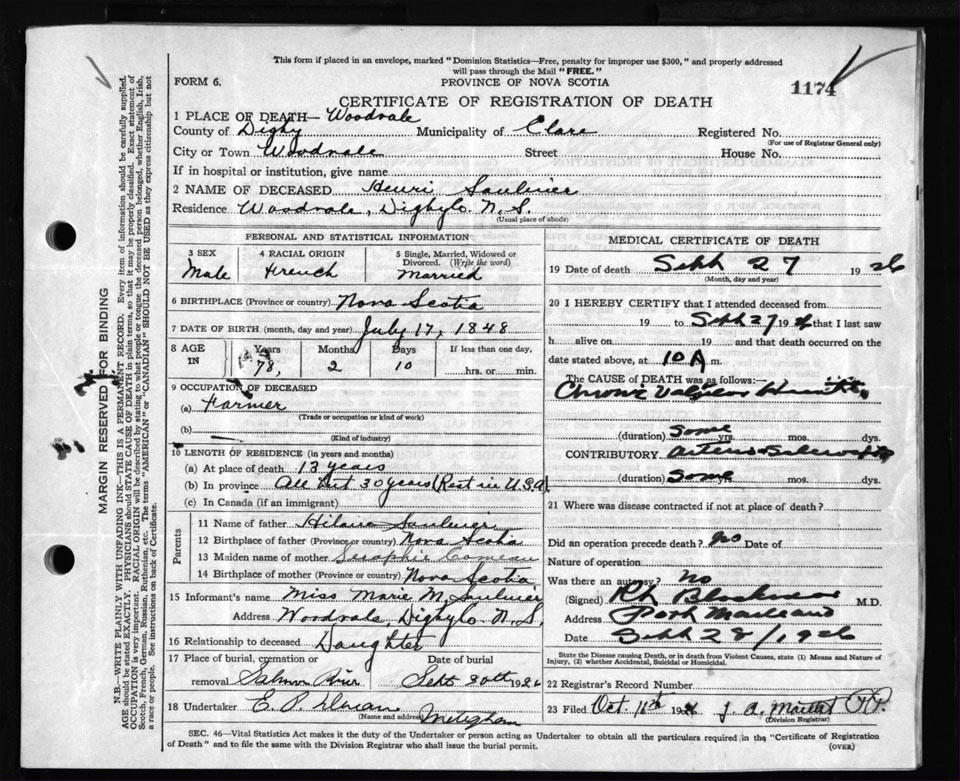 This form if placed in an envelope, marked "Dominion Statistics—Free, penalty for improper use $300," and properly addressed
will pass through the Mail "FREE."
FORM 6.
PROVINCE OF NOVA SCOTIA
1174
CERTIFICATE OF REGISTRATION OF DEATH
1 PLACE OF DEATH— Woodvale
County of Digby Municipality of Clare Registered No.
(For use of Registrar General only)
City or Town Woodvale Street House No.
If in hospital or institution, give name
2 NAME OF DECEASED Henri Saulnier
Residence Woodvale, Digby Co. N.S.
(Usual place of abode)
PERSONAL AND STATISTICAL INFORMATION
3 SEX Male
4 RACIAL ORIGIN French
5 Single, Married, Widowed or
Divorced. (Write the word)
Married
6 BIRTHPLACE (Province or country) Nova Scotia
7 DATE OF BIRTH (month, day and year) July 17, 1848
8 AGE IN Years 78, Months 2 Days 10 If less than one day, hrs. or min.
9 OCCUPATION OF DECEASED
(a) Farmer
(Trade or occupation or kind of work)
(b)
(Kind of industry)
10 LENGTH OF RESIDENCE (in years and months)
(a) At place of death 13 years
(b) In province All but 30 years (Rest in U.S.A)
(c) In Canada (if an immigrant)
Parents
11 Name of father Hilaire Saulnier
12 Birthplace of father (Province or country) Nova Scotia
13 Maiden name of mother Seraphie Comeau
14 Birthplace of mother (Province or country) Nova Scotia
15 Informant's name Miss Marie M. Saulnier
Address Woodvale, Digby Co. N.S.
16 Relationship to deceased Daughter
17 Place of burial, cremation or
removal Salmon River
Date of burial
Sept 30th 1926
18 Undertaker E. P.
(Name and address) Meteghan
MEDICAL CERTIFICATE OF DEATH
19 Date of death Sept 27 1926
(Month, day and year)
20 I HEREBY CERTIFY that I attended deceased from
19 to Sept 27 19 26 that I last saw
h alive on 19 and that death occurred on the
date stated above, at 10 A m.
The CAUSE OF DEATH was as follows:—
Chronic
(duration) Some yrs. mos. dys.
CONTRIBUTORY
(duration) Some mos. dys.
21 Where was disease contracted if not at place of death?
Did an operation precede death? No Date of
Nature of operation
Was there an autopsy? No
(Signed) M.D.
Address Port Maitland
Date Sept 28/1926
State the Disease causing Death, or in death from Violent Causes, state (1) Means and Nature of
Injury, (2) whether Accidental, Suicidal or Homicidal.
22 Registrar's Record Number
23 Filed Oct 19 J. A.
(Division Registrar)
SEC. 46—Vital Statistics Act makes it the duty of the Undertaker or person acting as Undertaker to obtain all the particulars required in the "Certificate of Registration
of Death" and to file the same with the Division Registrar who shall issue the burial permit.
(OVER)
MARGIN RESERVED FOR BINDING
N.B.—WRITE PLAINLY WITH UNFADING INK—THIS IS A PERMANENT RECORD. Every item of information should be carefully supplied.
AGE should be stated EXACTLY. PHYSICIANS should STATE CAUSE OF DEATH in plain terms, so that it may be properly classified. Exact statement of
OCCUPATION is very important. RACIAL ORIGIN will be described by stating to what people or tongue the deceased person belonged, whether English, Irish,
Scotch, French, German, Russian, Ruthenian, etc. The terms "AMERICAN" or "CANADIAN" SHOULD NOT BE USED as they express citizenship but not
a race or people. See instructions on back of Certificate.